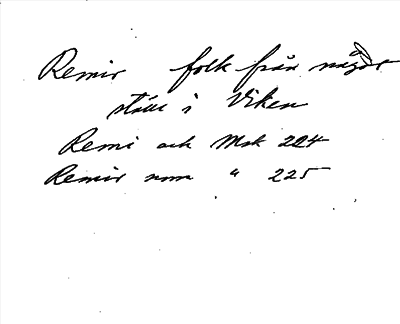 Remir folk från något
ställe i Viken
Remi och Msk 224
Remir som " 225